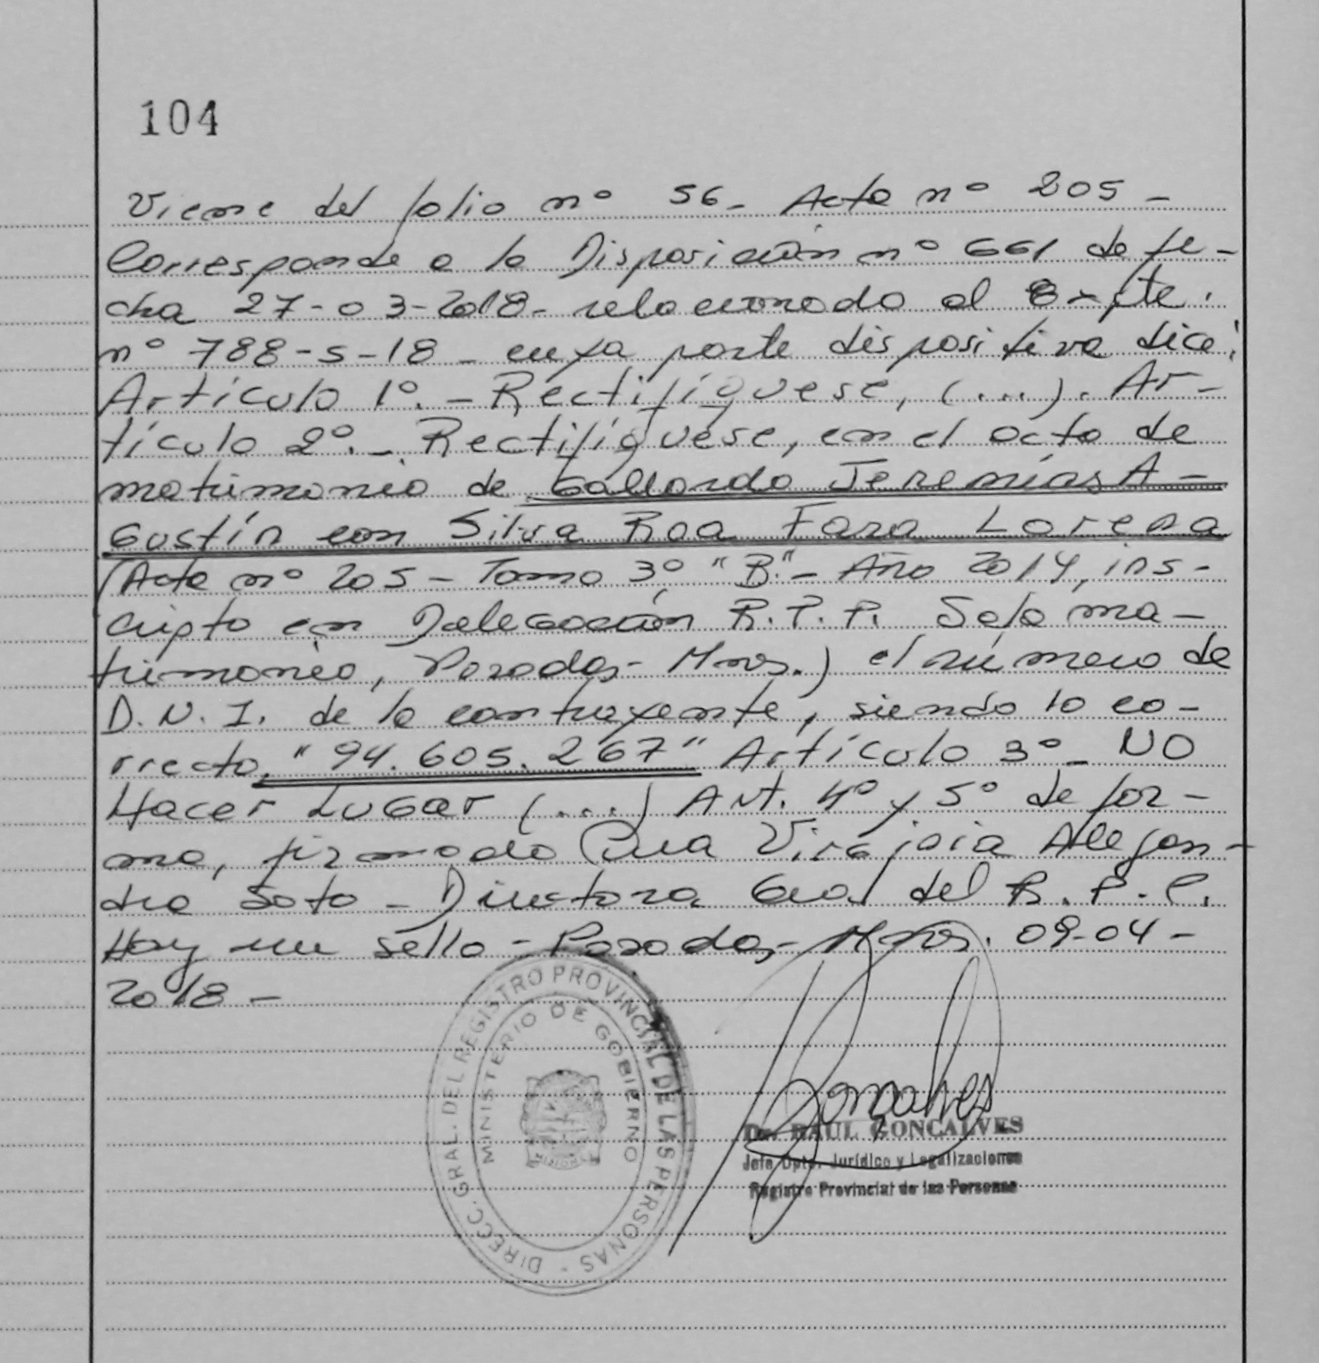 104
Viene del folio nº 56- Acta nº 205-
Corresponde a la Disposición nº 661 de fe-
cha 27-03-2018- relacionado al Expte.
nº 788-S-18- cuya parte dispositiva dice:
Artículo 1º.- Rectifíquese, (...). Ar-
tículo 2º.- Rectifíquese, en el acta de
matrimonio de Gallardo Jeremías A-
gustín con Silva Roa Fara Lorena
(Acta nº 205- Tomo 3º "B"- Año 2014, ins-
cripto en Delegación R.P.P. Sala ma-
trimonio, Posadas- Mnes.) el número de
D.N.I. de la contrayente, siendo lo co-
rrecto, "94.605.267" Artículo 3º- NO
Hacer Lugar (...) Art. 4º y 5º de for-
ma, firmado Dra Virginia Alejan-
dra Soto- Directora Gral del R.P.P.
Hay un sello- Posadas- Mnes. 09-04-
2018-
DIRECC. GRAL. DEL REGISTRO PROVINCIAL DE LAS PERSONAS -
MINISTERIO DE GOBIERNO
Goncalves
Dr. RAUL GONCALVES
Jefe Dpto. Jurídico y Legalizaciones
Registro Provincial de las Personas